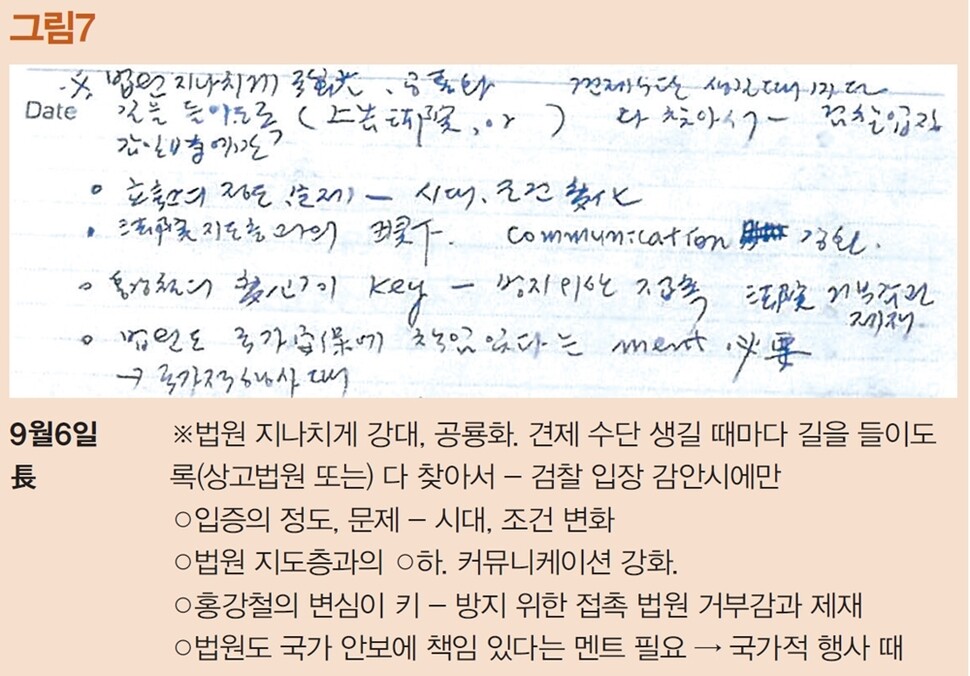 그림7
※ 법원 지나치게 強大, 공룡화 견제수단 생길때마다
Date 길을 들이도록 (上告法院, or ) 다 찾아서 - 검찰입장
감안時에만
○ 입증의 정도, 문제 - 시대, 조건 變化
• 法院지도층과의 communication 강화.
○ 홍강철의 變心이 key - 방지위한 접촉 法院 거부감과
제재
○ 법원도 국가安保에 책임있다는 ment 必要
→ 국가적행사때
9월6일 ※법원 지나치게 강대, 공룡화. 견제 수단 생길 때마다 길을 들이도
長 록(상고법원 또는) 다 찾아서 – 검찰 입장 감안시에만
○입증의 정도, 문제 – 시대, 조건 변화
○법원 지도층과의 ○하. 커뮤니케이션 강화.
○홍강철의 변심이 키 – 방지 위한 접촉 법원 거부감과 제재
○법원도 국가 안보에 책임 있다는 멘트 필요 → 국가적 행사 때